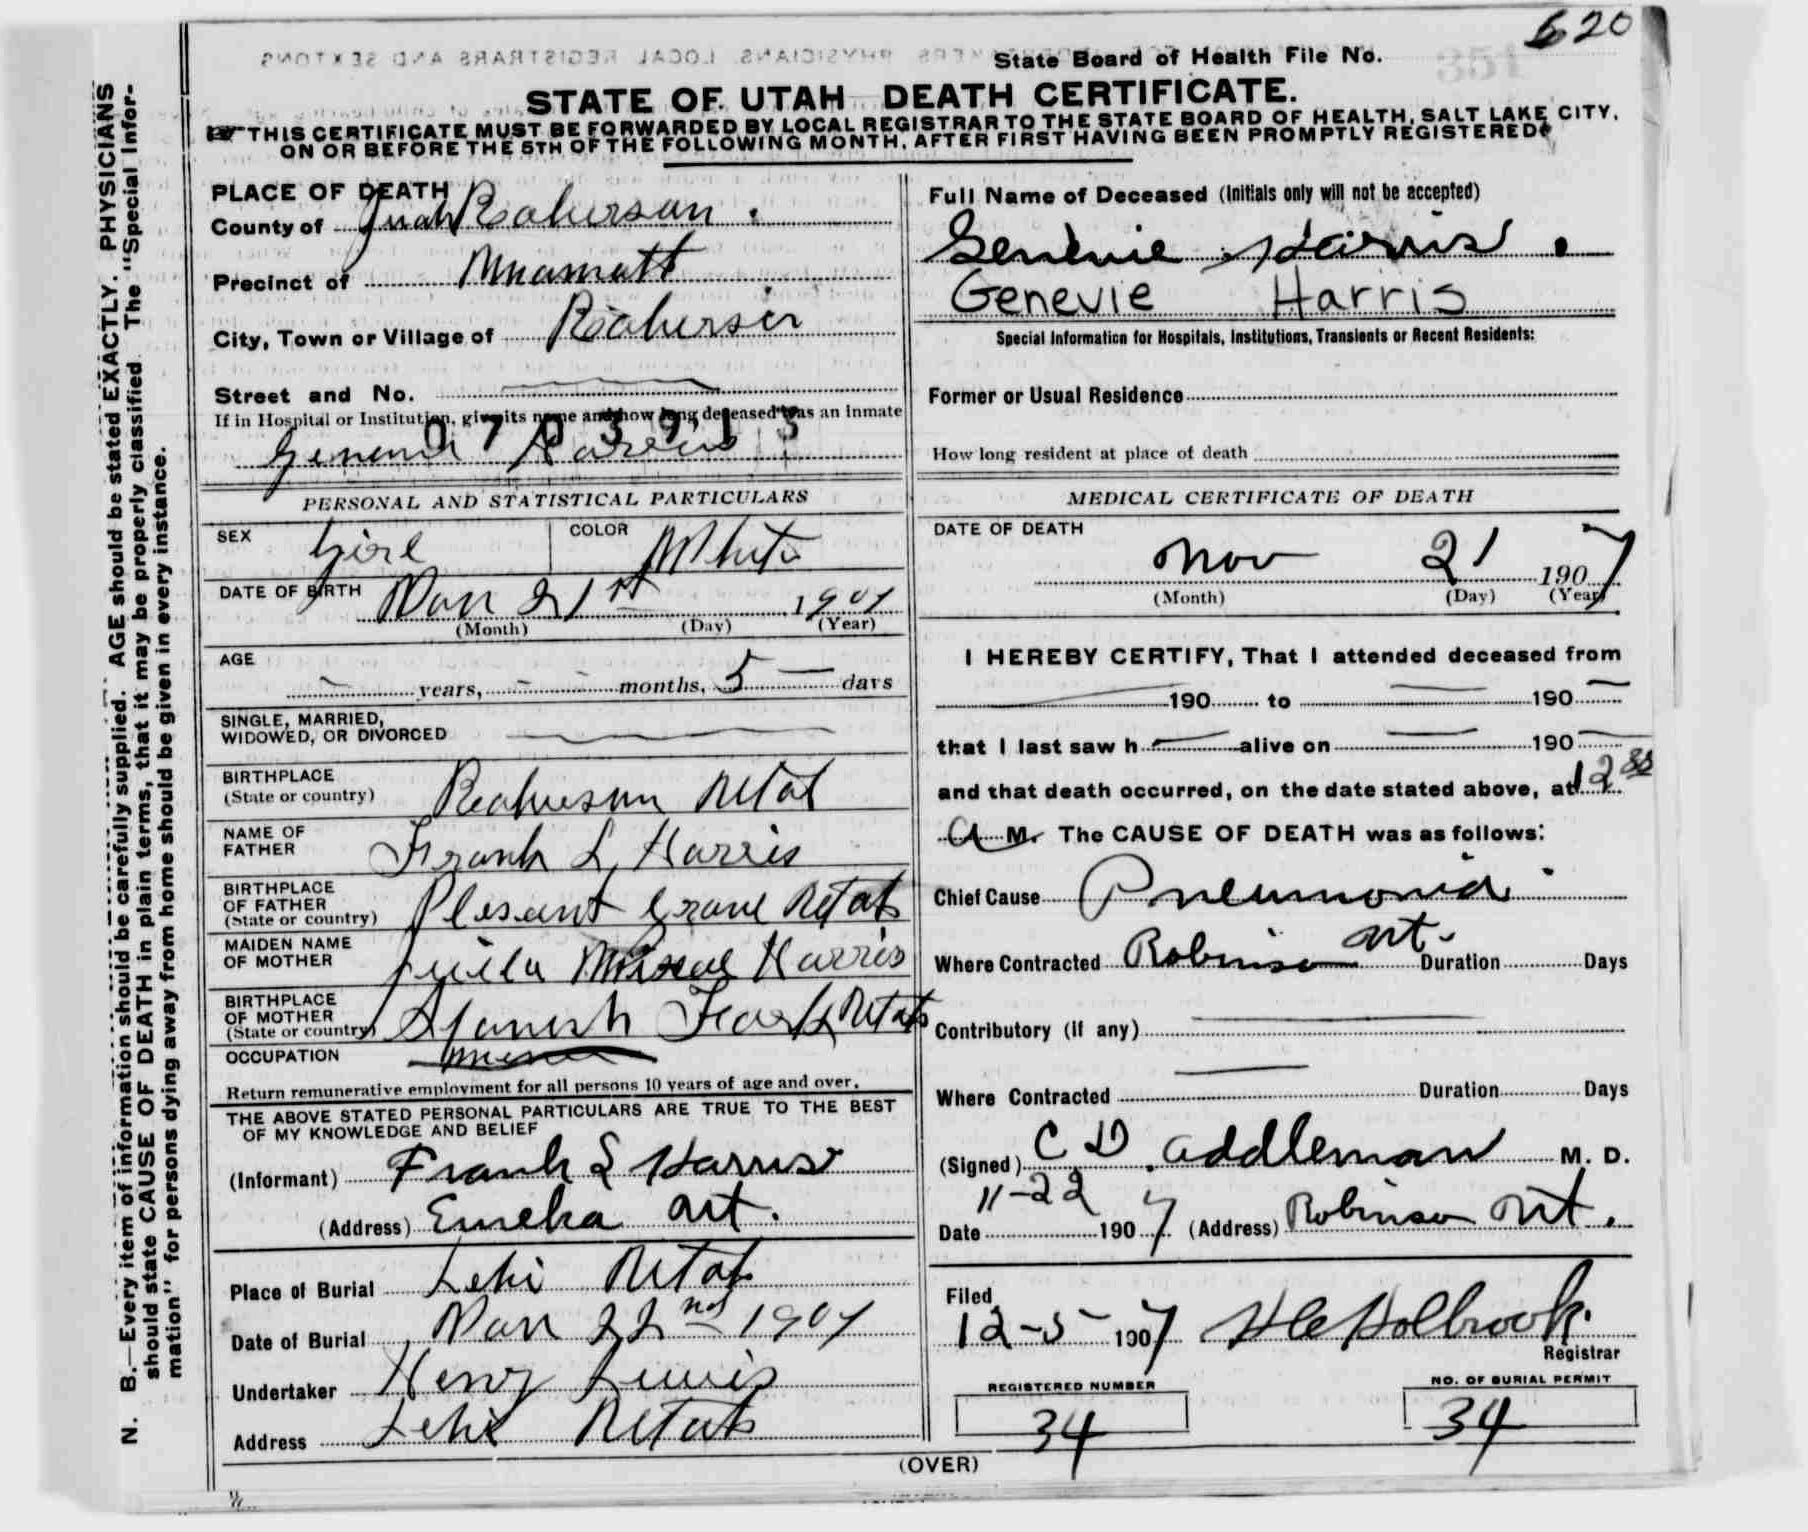 620
State Board of Health File No. 351
STATE OF UTAH DEATH CERTIFICATE.
THIS CERTIFICATE MUST BE FORWARDED BY LOCAL REGISTRAR TO THE STATE BOARD OF HEALTH, SALT LAKE CITY,
ON OR BEFORE THE 5TH OF THE FOLLOWING MONTH, AFTER FIRST HAVING BEEN PROMPTLY REGISTERED
N. B.—Every item of information should be carefully supplied. AGE should be stated EXACTLY. PHYSICIANS
should state CAUSE OF DEATH in plain terms, that it may be properly classified. The "Special Infor-
mation" for persons dying away from home should be given in every instance.
PLACE OF DEATH
County of Juab
Precinct of
City, Town or Village of
Street and No.
If in Hospital or Institution, give its name and how long deceased was an inmate
0703913
Harris
PERSONAL AND STATISTICAL PARTICULARS
SEX Girl COLOR White
DATE OF BIRTH 21st 1907
(Month) (Day) (Year)
AGE
years, months, 5 days
SINGLE, MARRIED,
WIDOWED, OR DIVORCED
BIRTHPLACE
(State or country) Utah
NAME OF
FATHER Frank L Harris
BIRTHPLACE
OF FATHER
(State or country) Plesant Grove Utah
MAIDEN NAME
OF MOTHER Harris
BIRTHPLACE
OF MOTHER
(State or country) Spanish Fork Utah
OCCUPATION
Return remunerative employment for all persons 10 years of age and over.
THE ABOVE STATED PERSONAL PARTICULARS ARE TRUE TO THE BEST
OF MY KNOWLEDGE AND BELIEF
(Informant) Frank L Harris
(Address) Eureka Ut.
Place of Burial Lehi Utah
Date of Burial 22nd 1907
Undertaker Henry Lewis
Address Lehi Utah
Full Name of Deceased (Initials only will not be accepted)
Genevie Harris.
Genevie Harris
Special Information for Hospitals, Institutions, Transients or Recent Residents:
Former or Usual Residence
How long resident at place of death
MEDICAL CERTIFICATE OF DEATH
DATE OF DEATH
Nov 21 1907
(Month) (Day) (Year)
I HEREBY CERTIFY, That I attended deceased from
190 to 190
that I last saw h alive on 190
and that death occurred, on the date stated above, at 12
a M. The CAUSE OF DEATH was as follows:
Chief Cause Pneumonia
Where Contracted Robinson Ut. Duration Days
Contributory (if any)
Where Contracted Duration Days
(Signed) C D Addleman M. D.
Date 11-22 1907 (Address) Robinson Ut.
Filed
12-5 1907 Holbrook
Registrar
REGISTERED NUMBER
34
NO. OF BURIAL PERMIT
34
(OVER)